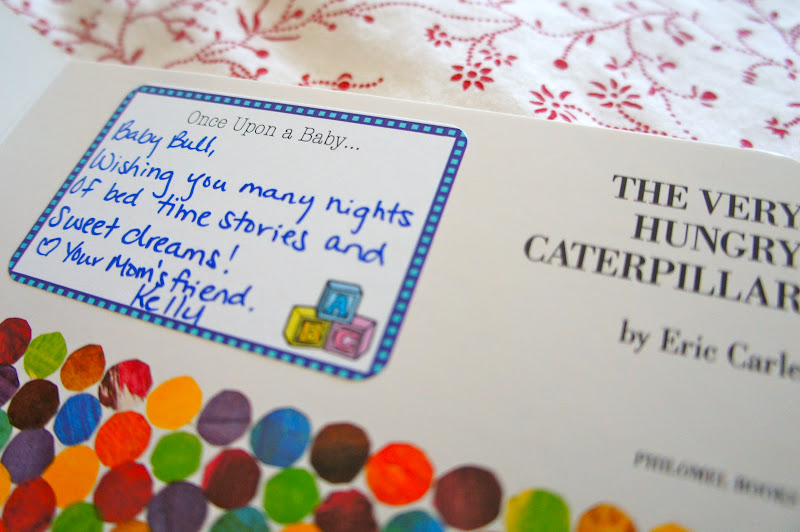 Once Upon a Baby...
Baby Bull,
Wishing you many nights
Of bed time stories and
Sweet dreams!
♡ Your Mom's friend.
Kelly
A
B C
THE VERY
HUNGRY
CATERPILLAR
by Eric Carle
PHILOMEL BOOKS